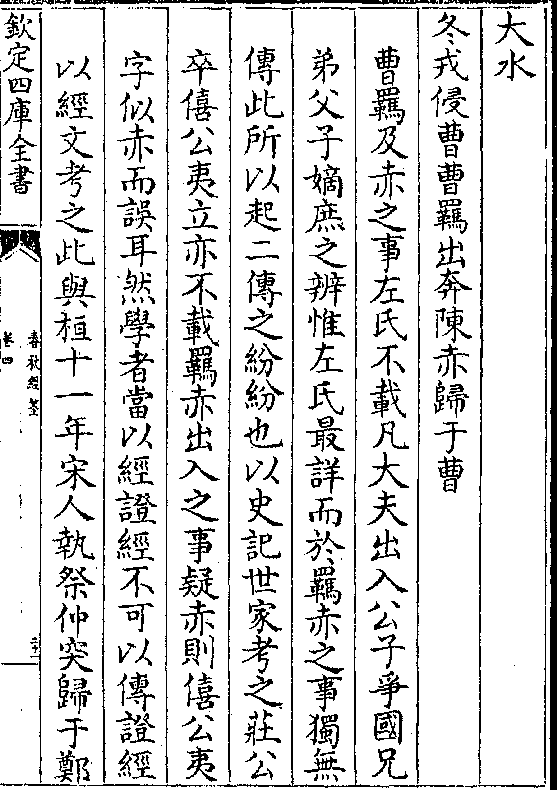 大水
冬戎侵曹曹羈出奔陳赤歸于曹
曹羈及赤之事左氏不載凡大夫出入公子爭國兄
弟父子嫡庶之辨惟左氏最詳而於羈赤之事獨無
傳此所以起二傳之紛紛也以史記世家考之莊公
卒僖公夷立亦不載羈赤出入之事疑赤則僖公夷
字似赤而誤耳然學者當以經證經不可以傳證經
以經文考之此與桓十一年宋人執祭仲突歸于鄭
欽定四庫全書
春秋經筌
卷四